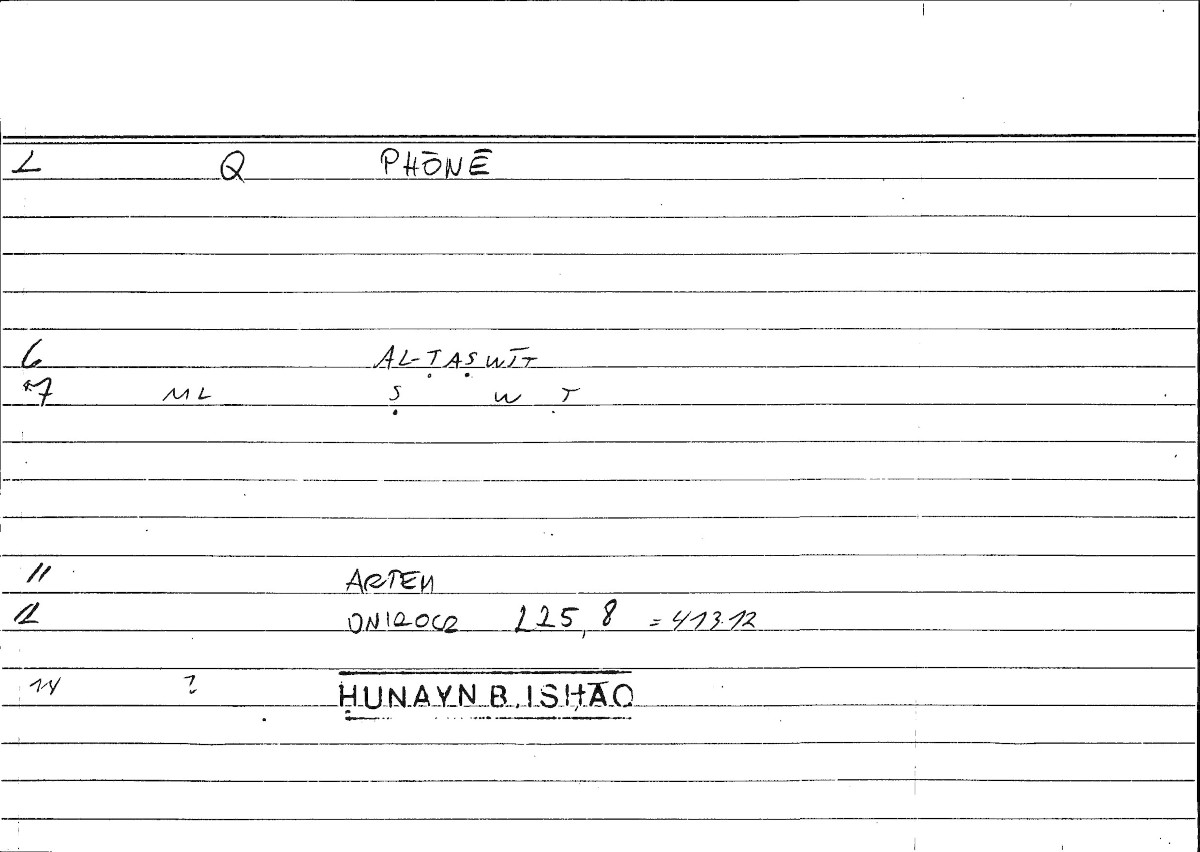 2 Q PHŌNĒ
6 AL-ṬAṢWĪT
*7 ML Ṣ W T
11 ARTEM
12 ONIROCR 225,8 = 413.12
14 ? ḤUNAYN B. ISḤĀQ